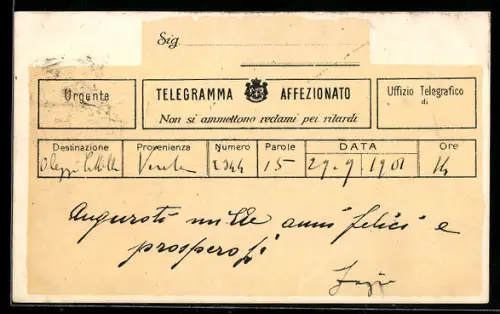 Sig.
Urgente
TELEGRAMMA AFFEZIONATO
Non si ammettono reclami pei ritardi
Uffizio Telegrafico
di
Destinazione Provenienza Numero Parole DATA Ore
2344 15 29 . 9 1901 14
Auguroti mille anni felici e